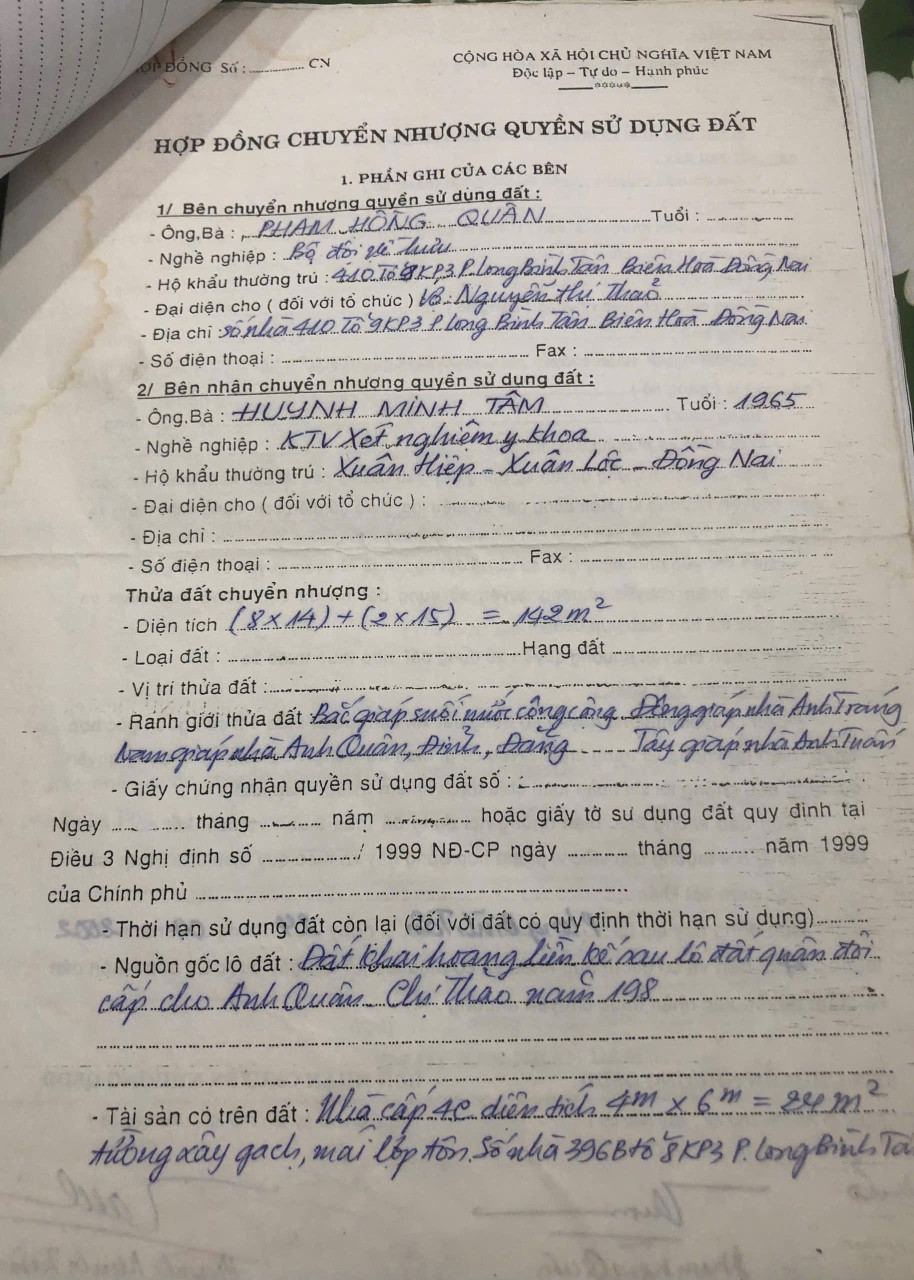 HỢP ĐỒNG Số : ............... CN
CỘNG HÒA XÃ HỘI CHỦ NGHĨA VIỆT NAM
Độc lập – Tự do – Hạnh phúc
HỢP ĐỒNG CHUYỂN NHƯỢNG QUYỀN SỬ DỤNG ĐẤT
1. PHẦN GHI CỦA CÁC BÊN
1/ Bên chuyển nhượng quyền sử dụng đất :
- Ông,Bà : PHẠM HỒNG QUÂN Tuổi :
- Nghề nghiệp : Bộ đội về hưu
- Hộ khẩu thường trú : 410 Tổ 8 KP3 P. Long Bình Tân Biên Hoà Đồng Nai
- Đại diện cho ( đối với tổ chức ) Vợ : Nguyễn Thị Thảo
- Địa chỉ : Số nhà 410 Tổ 9 KP3 P Long Bình Tân Biên Hoà Đồng Nai
- Số điện thoại : Fax :
2/ Bên nhận chuyển nhượng quyền sử dụng đất :
- Ông,Bà : HUỲNH MINH TÂM Tuổi : 1965
- Nghề nghiệp : KTV Xét nghiệm y khoa
- Hộ khẩu thường trú : Xuân Hiệp - Xuân Lộc - Đồng Nai
- Đại diện cho ( đối với tổ chức ) :
- Địa chỉ :
- Số điện thoại : Fax :
Thửa đất chuyển nhượng :
- Diện tích (8 x 14) + (2 x 15) = 142 m²
- Loại đất : Hạng đất
- Vị trí thửa đất :
- Ranh giới thửa đất Bắc giáp suối nước công cộng Đông giáp nhà Anh Tráng
Nam giáp nhà Anh Quân, Định, Đăng Tây giáp nhà Anh Tuấn
- Giấy chứng nhận quyền sử dụng đất số :
Ngày tháng năm hoặc giấy tờ sư dụng đất quy đinh tại
Điều 3 Nghị định số / 1999 NĐ-CP ngày tháng năm 1999
của Chính phủ
- Thời hạn sử dụng đất còn lại (đối với đất có quy định thời hạn sử dụng)
- Nguồn gốc lô đất : Đất khai hoang liền kế sau lô đất quân đội
cấp cho Anh Quân Chị Thảo năm 198
- Tài sản có trên đất : Nhà cấp 4C diện tích 4m x 6m = 24 m²
tường xây gạch, mái lớp tôn. Số nhà 396B tổ 8 KP3 P. Long Bình Tâ